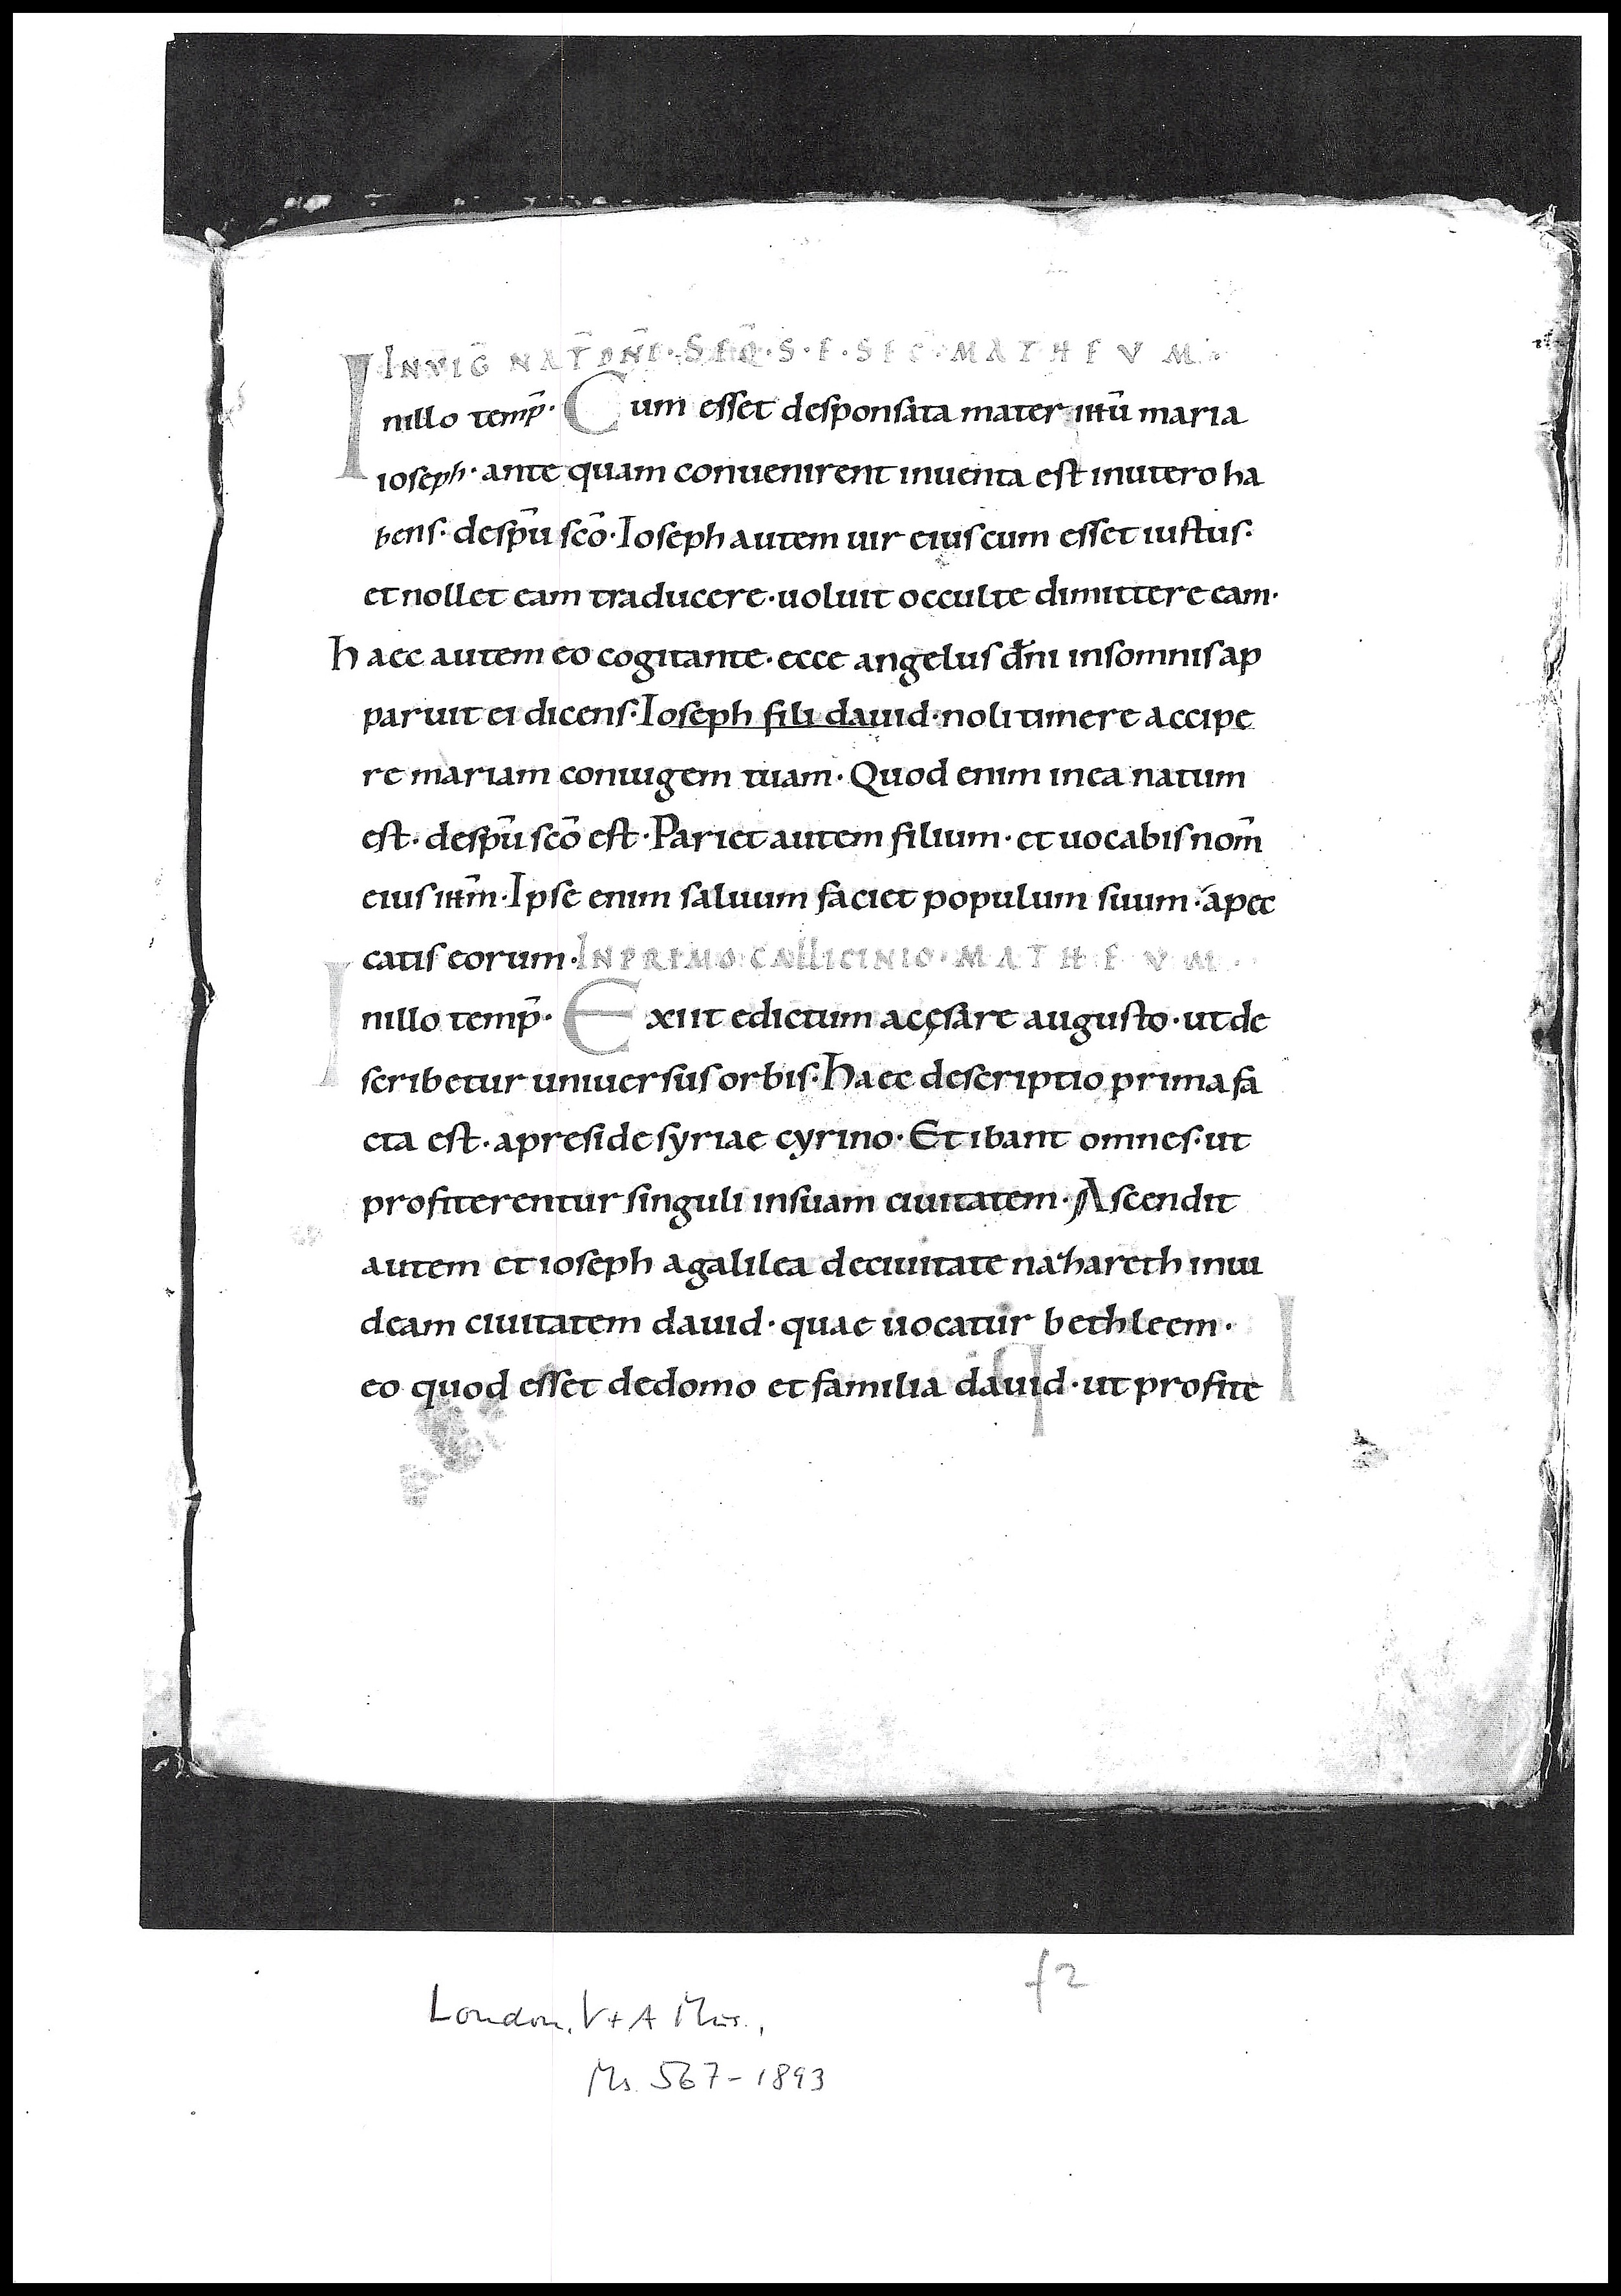 INVIG NAT̄ DN̄I · SEQ̄ · S · E · SEC · MATHEVM ·
Inillo temp̄ · Cum esset desponsata mater ihū maria
ioseph · ante quam conuenirent inuenta est inutero ha
bens · despū scō · Ioseph autem uir eius cum esset iustus ·
et nollet eam traducere · uoluit occulte dimittere eam ·
haec autem eo cogitante · ecce angelus dñi insomnis ap
paruit ei dicens · Ioseph fili dauid · noli timere accipe
re mariam coniugem tuam · Quod enim inea natum
est · despū scō est · Pariet autem filium · et uocabis nom̄
eius ihm̄ · Ipse enim saluum faciet populum suum · apec
catis eorum · INPRIMO GALLICINIO · MATHEVM ·
Inillo temp̄ · Exiit edictum acęsare augusto · ut de
scribetur uniuersus orbis · Haec descriptio prima fa
cta est · apreside syriae cyrino · Et ibant omnes · ut
profiterentur singuli insuam ciuitatem · Ascendit
autem et ioseph agalilea deciuitate nahareth iniu
deam ciuitatem dauid · quae uocatur bethleem ·
eo quod esset dedomo et familia dauid · ut profite
f 2
London, V+A Mus.,
Ms. 567-1893